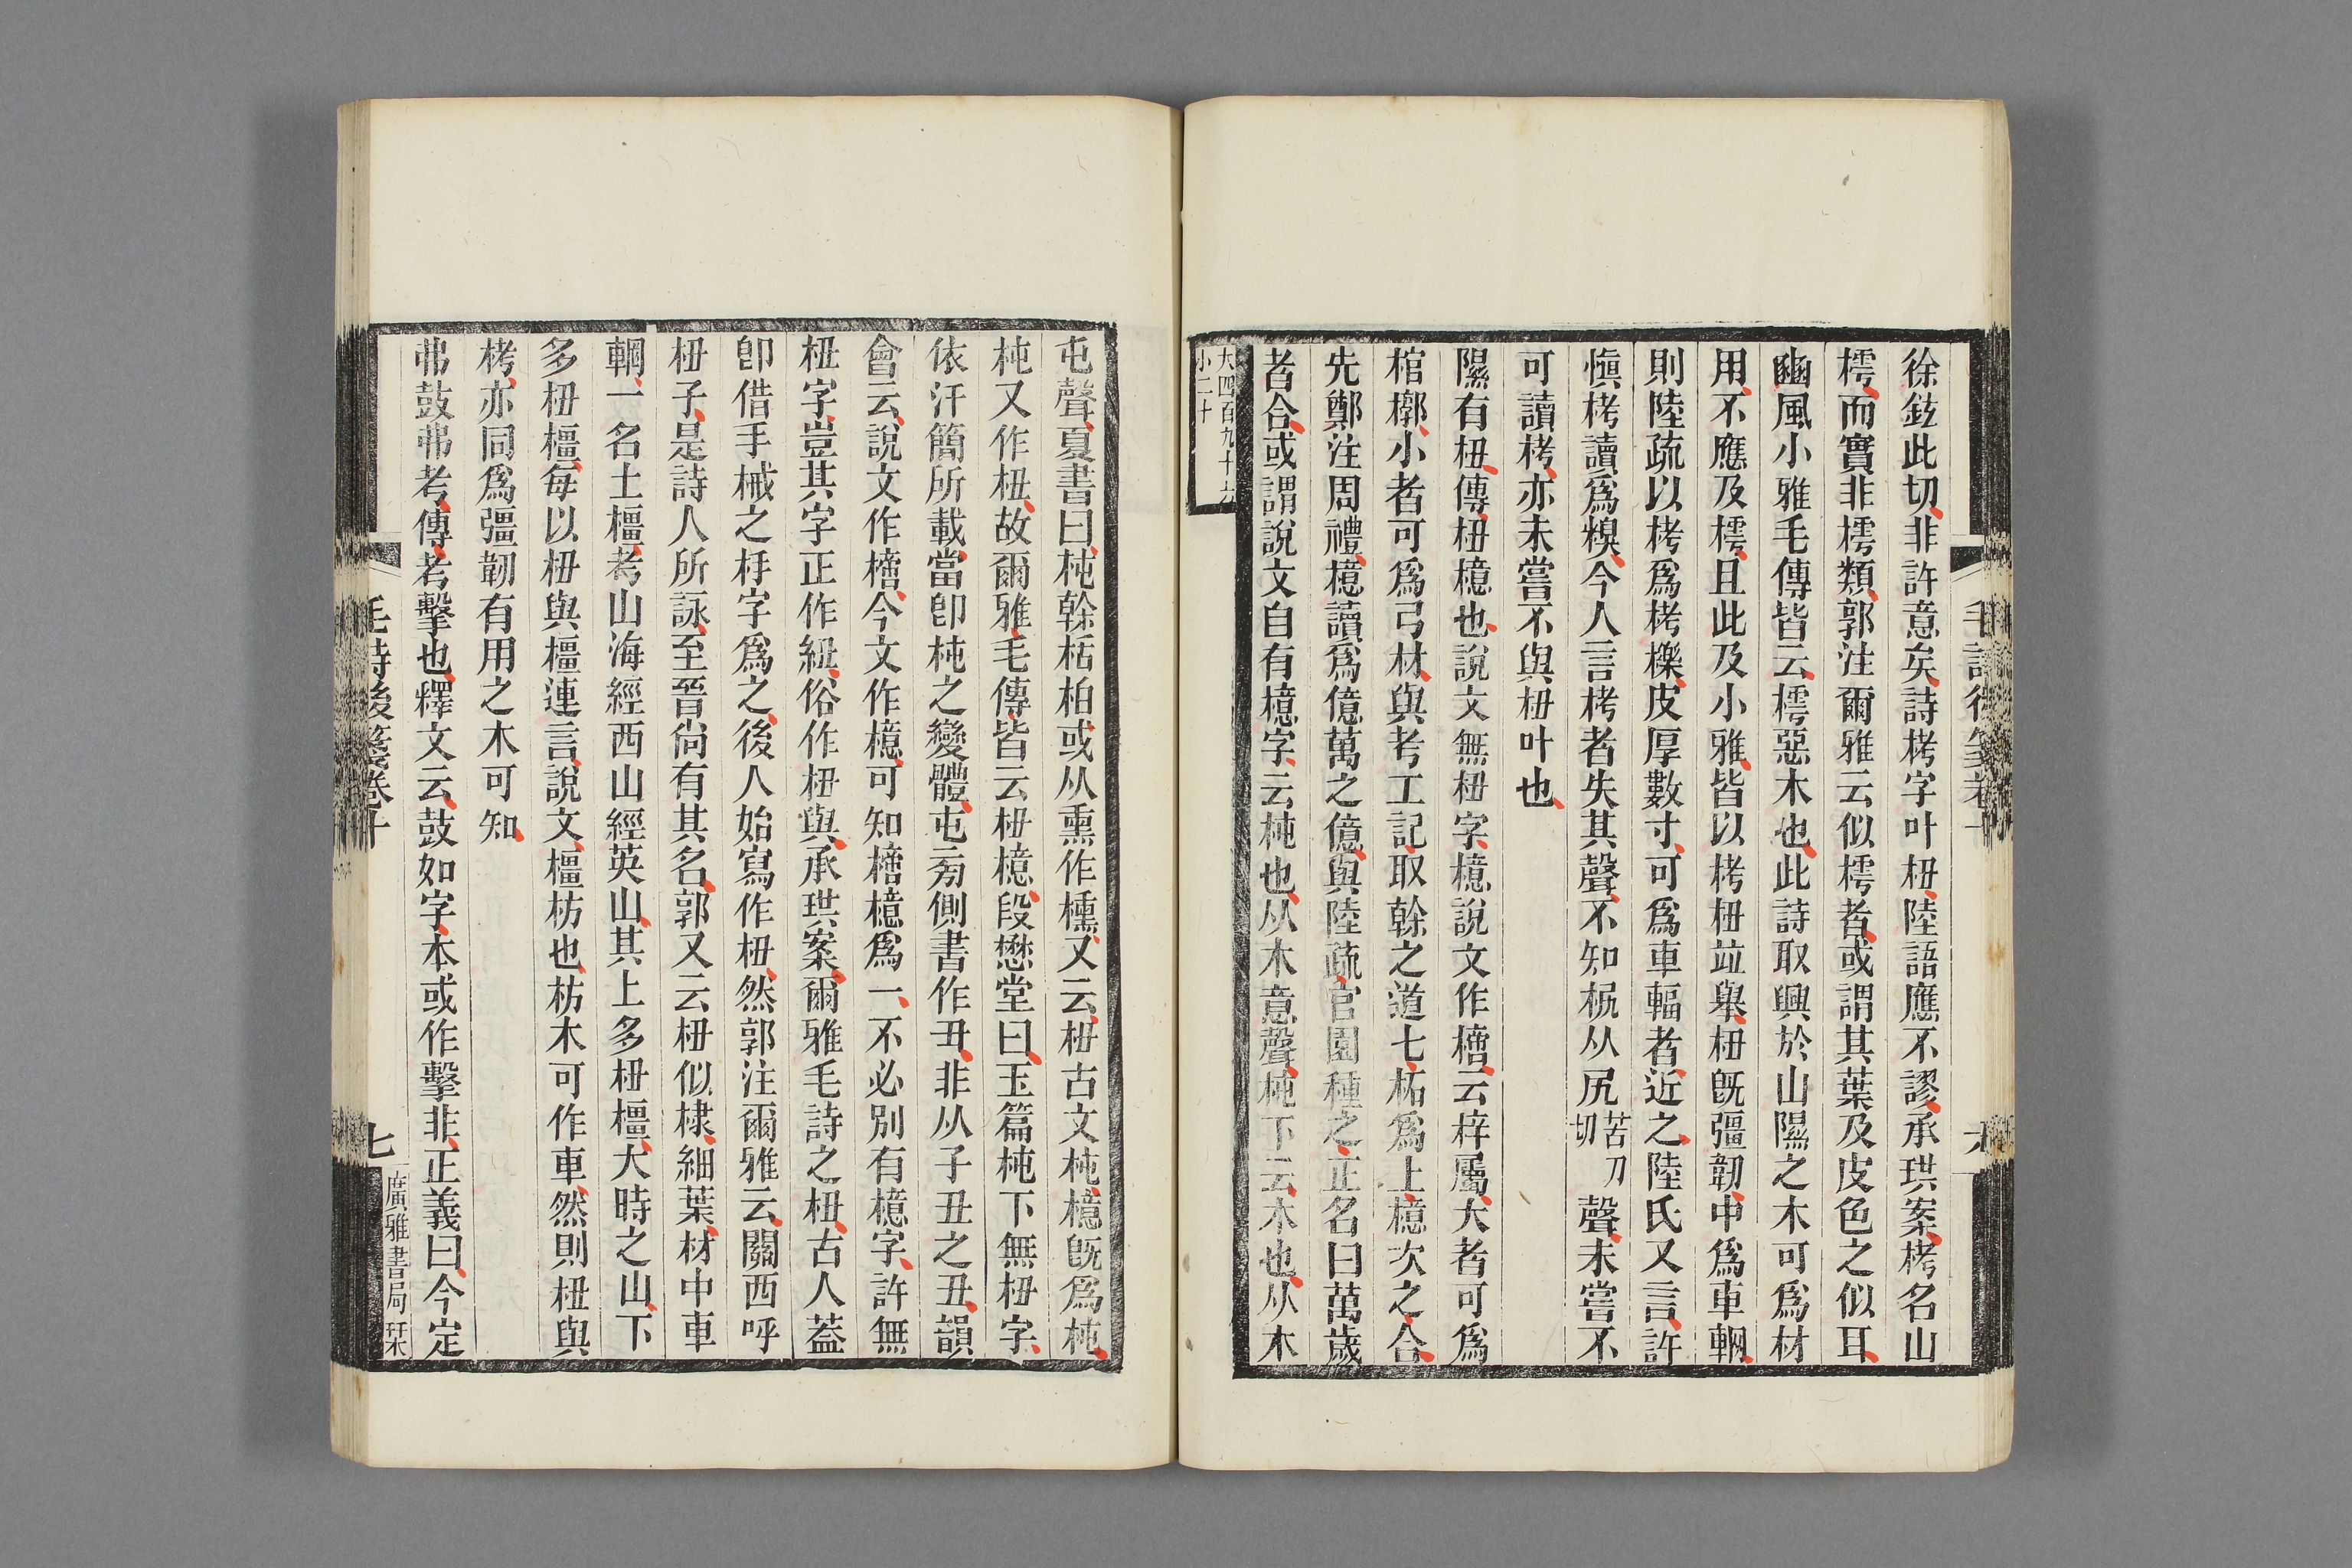 毛詩後箋卷十
六
徐鉉此切非許意矣詩栲字叶杻陸語應不謬承珙案栲名山
樗而實非樗類郭注爾雅云似樗者或謂其葉及皮色之似耳
豳風小雅毛傳皆云樗惡木也此詩取興於山隰之木可爲材
用不應及樗且此及小雅皆以栲杻竝舉杻旣彊韌中爲車輞
則陸疏以栲爲栲櫟皮厚數寸可爲車輻者近之陸氏又言許
愼栲讀爲糗今人言栲者失其聲不知㧪从尻苦刀切聲未嘗不
可讀栲亦未嘗不與杻叶也
隰有杻傳杻檍也說文無杻字檍說文作㯆云梓屬大者可爲
棺槨小者可爲弓材與考工記取榦之道七柘爲上檍次之合
先鄭注周禮檍讀爲億萬之億與陸疏官園種之正名曰萬歲
者合或謂說文自有檍字云杶也从木意聲杶下云木也从木
大四百九十六
小二十
屯聲夏書曰杶榦栝柏或从熏作櫄又云杻古文杶檍旣爲杶
杶又作杻故爾雅毛傳皆云杻檍段懋堂曰玉篇杶下無杻字
依汗簡所載當卽杶之變體屯㫄側書作丑非从子丑之丑韻
會云說文作㯆今文作檍可知㯆檍爲一不必別有檍字許無
杻字豈其字正作紐俗作杻與承珙案爾雅毛詩之杻古人蓋
卽借手械之杽字爲之後人始寫作杻然郭注爾雅云關西呼
杻子是詩人所詠至晉尙有其名郭又云杻似棣細葉材中車
輞一名土橿考山海經西山經英山其上多杻橿大時之山下
多杻橿每以杻與橿連言說文橿枋也枋木可作車然則杻與
栲亦同爲彊韌有用之木可知
弗鼓弗考傳考擊也釋文云鼓如字本或作擊非正義曰今定
毛詩後箋卷十
七
廣雅書局栞